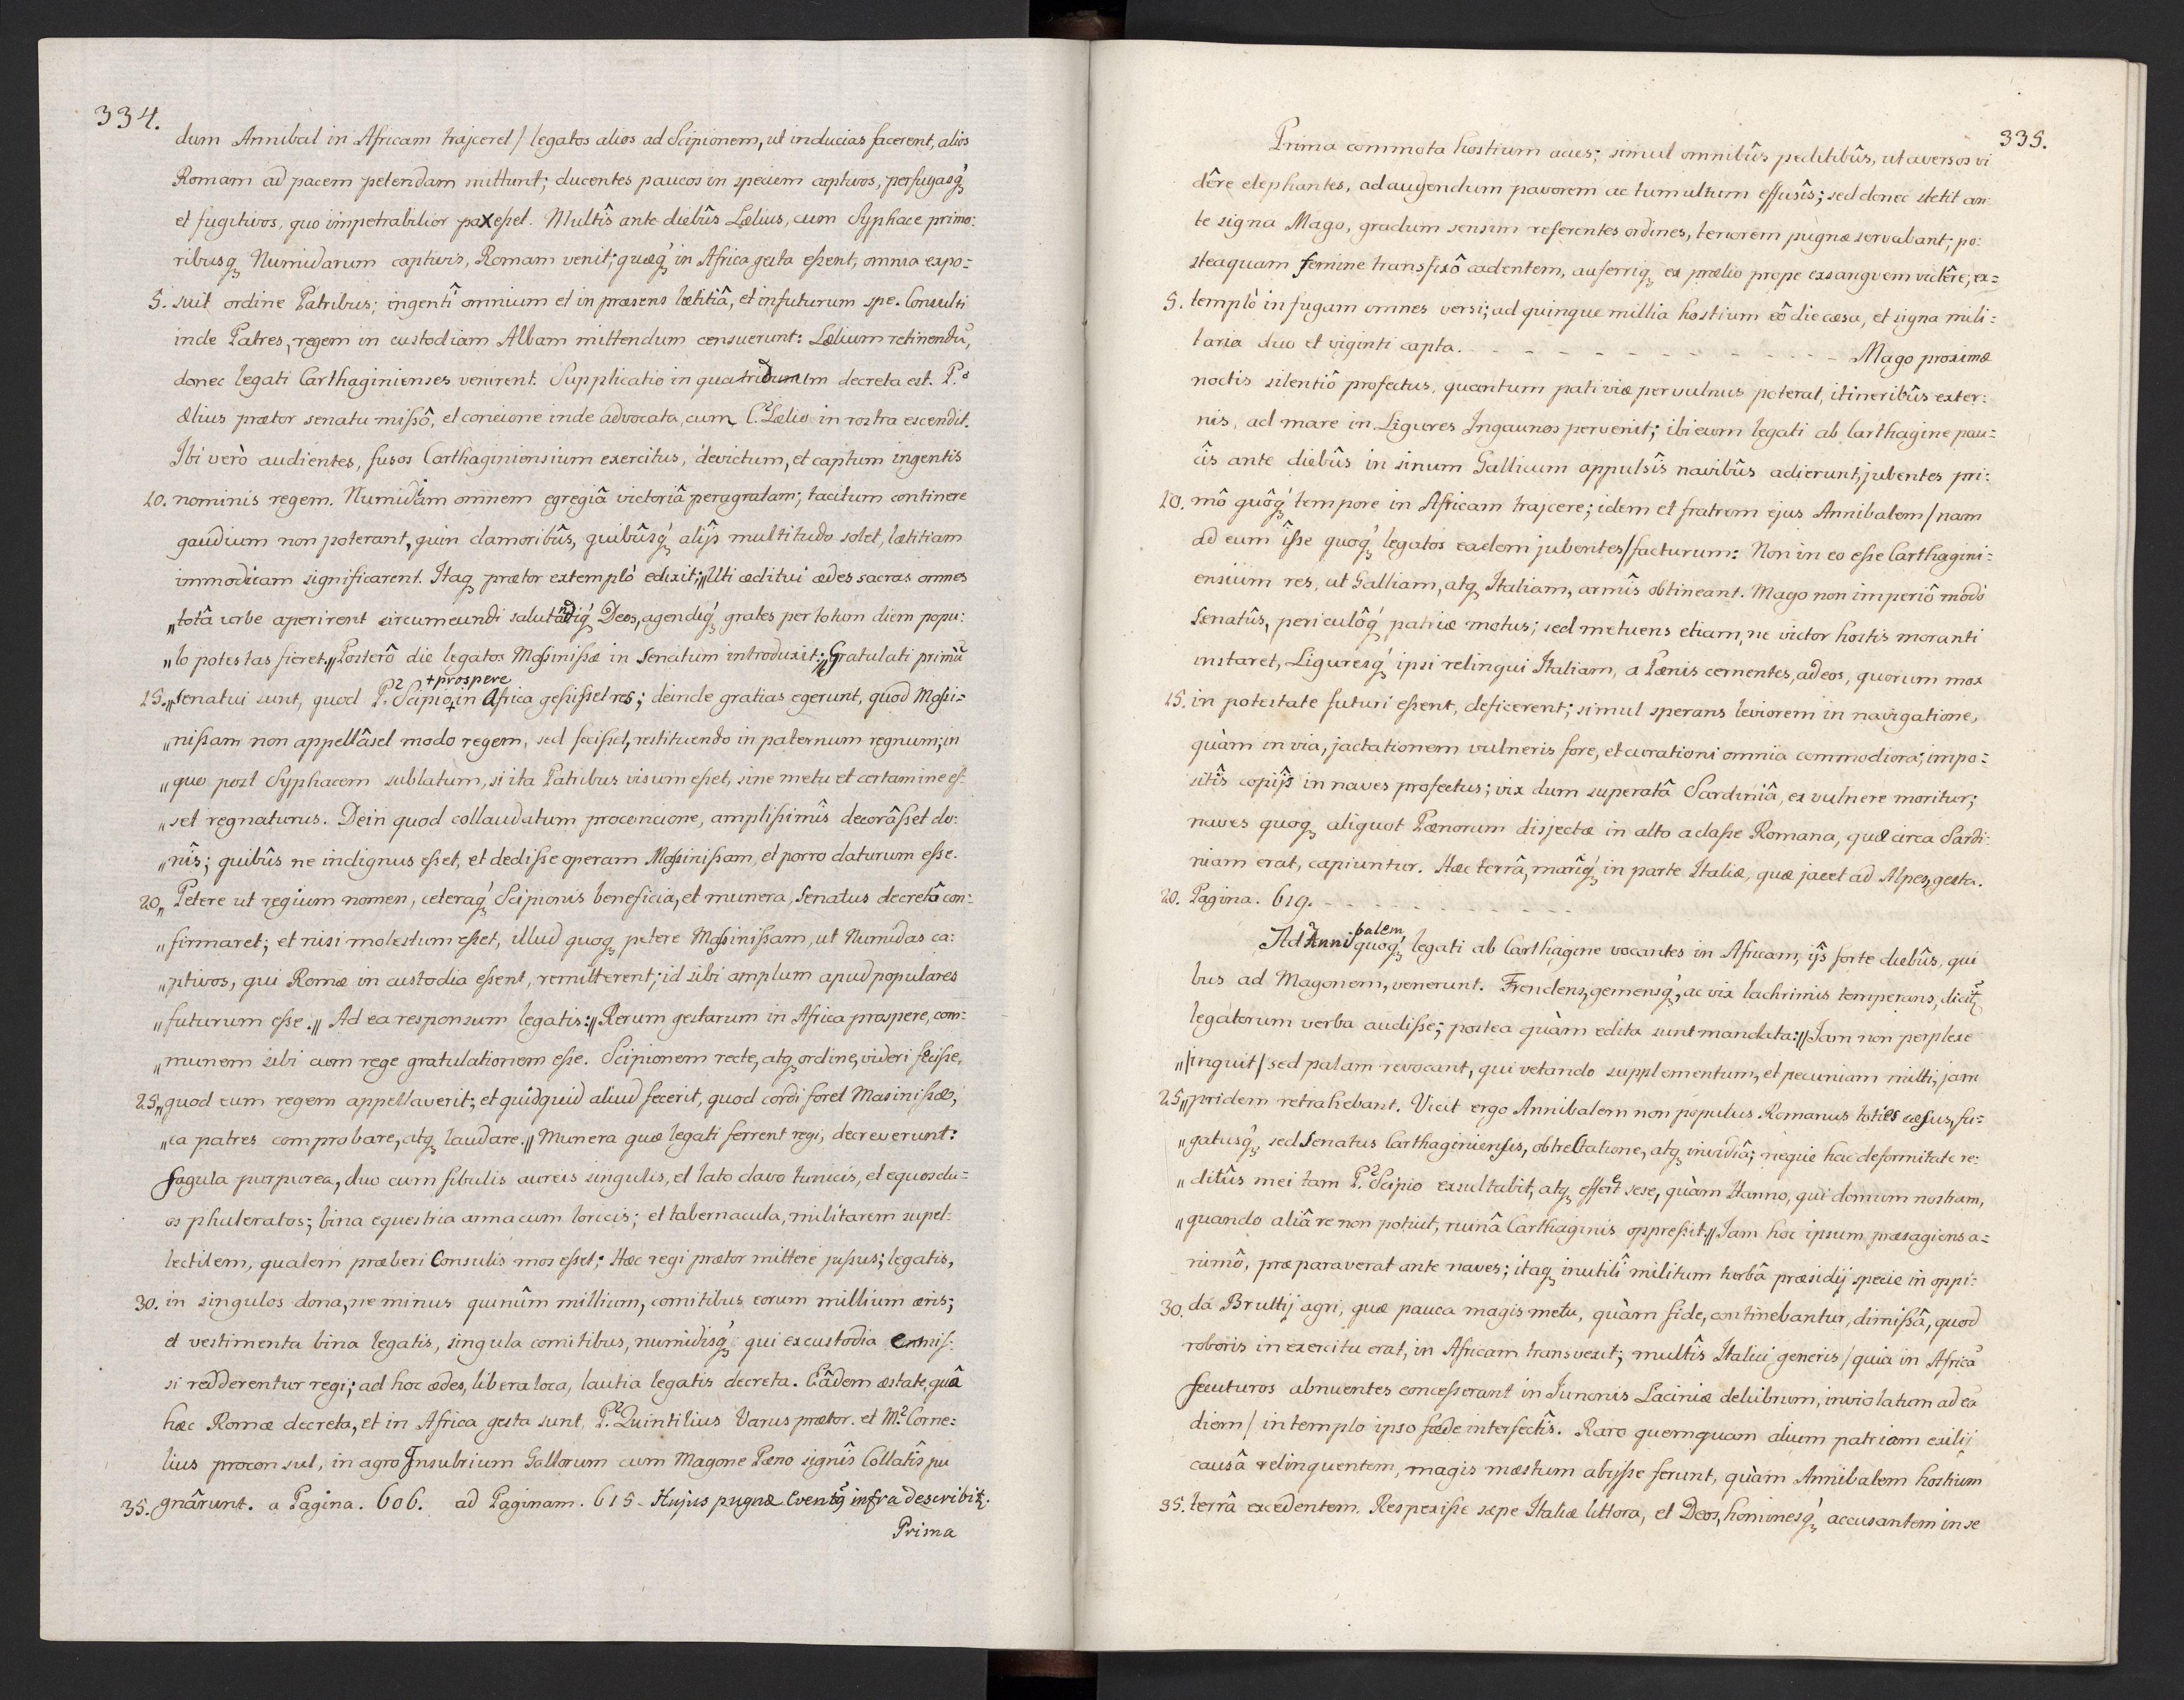 334.
dum Annibal in Africam trajceret / legatos alios ad Scipionem, ut inducias facerent, alios
Romam ad pacem petendam mittunt; ducentes paucos in speciem captivos, perfugasq́ꝫ
et fugitivos, quo impetrabilior pax eſset. Multîs ante diebûs Lælius, cum Syphace primo:
ribusqꝫ Numidarum captivis, Romam venit; quæq́ꝫ in Africa gesta eſsent, omnia expo:
5. suit ordine Patribus; ingentî omnium et in præsens lætitiâ, et in futurum spe. Consulti
inde Patres, regem in custodiam Albam mittendum censuerunt: Lælium retinendũ,
donec legati Carthaginienses venirent. Supplicatio in quatriduum decreta est. P.
Ælius prætor senatu miſsô, et concione inde advocata, cum C. Lælio in rostra escendit.
Ibi verò audientes, fusos Carthaginiensium exercitus, devictum, et captum ingentis
10. nominis regem. Numidiam omnem egregiâ victoriâ peragratam; tacitum continere
gaudium non poterant, quin clamoribûs, quibûsq́ꝫ alijs multitudo solet, lætitiam
immodicam significarent. Itaqꝫ prætor extemplò edixit; „Uti æditui ædes sacras omnes
„totâ urbe aperirent circumeundi salutandiq́ꝫ Deos, agendiq́ꝫ grates per totum diem popu:
„lo potestas fieret.„ Posterô die legatos Maſiniſsæ in Senatum introduxit: „Gratulati primũ
+prospere
15. „senatui sunt, quod P. Scipio+in Africa geſsiſset res; deinde gratias egerunt, quod Maſi:
„niſsam non appellâset modo regem, sed feciſset, restituendo in paternum regnum; in
„quo post Syphacem sublatum, si ita Patribus visum eſset, sine metu et certamine eſ:
„set regnaturus. Dein quod collaudatum pro concione, ampliſsimîs decorâſset do:
„nîs; quibûs ne indignus eſset, et dediſse operam Maſiniſsam, et porro daturum eſse.
20. „Petere ut regium nomen, ceteraq́ꝫ Scipionis beneficia, et munera, Senatus decretô con:
„firmaret; et nisi molestum eſset, illud quoqꝫ petere Maſiniſsam, ut Numidas ca:
„ptivos, qui Romæ in custodia eſsent, remitterent; id sibi amplum apud populares
„futurum eſse.„ Ad ea responsum legatis: „Rerum gestarum in Africa prospere, com:
„munem sibi cum rege gratulationem eſse. Scipionem recte, atqꝫ ordine, videri feciſse,
25. „quod eum regem appellaverit; et quidquid aliud fecerit, quod cordi foret Masiniſsæ,
„ea patres comprobare, atqꝫ laudare.„ Munera quæ legati ferrent regi, decreverunt:
Sagula purpurea, duo cum fibulis aureis singulis, et lato clavo tunicis, et equos du:
os phaleratos; bina equestria arma cum loricis; et tabernacula, militarem supel:
lectilem, qualem præberi Consulis mos eſset; Hæc regi prætor mittere juſsus; legatis,
30. in singulos dona, ne minus quinûm millium, comitibus eorum millium æris;
et vestimenta bina legatis, singula comitibus, numidisq́ꝫ qui ex custodia emiſ:
si redderentur regi; ad hoc ædes, libera loca, lautia legatis decreta. Eâdem æstate, quâ
hæc Romæ decreta, et in Africa gesta sunt, P. Quintilius Varus prætor. et M. Corne:
lius proconsul, in agro Insubrium Gallorum cum Magone Pæno signîs Collatîs pu
35. gnârunt. a Pagina. 606. ad Paginam. 615. Hujus pugnæ Eventqꝫ infra describitꝫ.
Prima
335.
Prima commota hostium acies; simul omnibûs peditibûs, ut aversos vi
dêre elephantes, ad augendum pavorem ac tumultum effusîs; sed donec stetit an
te signa Mago, gradum sensim referentes ordines, tenorem pugnæ servabant; po:
steaquam femine transfixô cadentem, auferriqꝫ ex prælio prope exsanguem vidêre; ex:
5. templò in fugam omnes versi; ad quinque millia hostium eô die cæsa, et signa mili:
taria duo et viginti capta. - - - - - - - - - - - - Mago proximæ
noctis silentiô profectus, quantum pati viæ per vulnus poterat, itineribûs exter:
nis, ad mare in Ligures Ingaunos pervenit; ibi eum legati ab Carthagine pau:
cîs ante diebûs in sinum Gallicum appulsîs navibûs adierunt, jubentes pri:
10. mô quôq́ꝫ tempore in Africam trajcere; idem et fratrem ejus Annibalem / nam
ad eum îſse quoq́ꝫ legatos eadem jubentes / facturum: Non in eo eſse Carthagini:
ensium res, ut Galliam, atqꝫ Italiam, armîs obtineant. Mago non imperiô modò
Senatûs, periculôq́ꝫ patriæ motus; sed metuens etiam, ne victor hostis moranti
instaret, Liguresq́ꝫ ipsi relinqui Italiam, a Pænis cernentes, ad eos, quorum mox
15. in potestate futuri eſsent, deficerent; simul sperans leviorem in navigatione,
quàm in via, jactationem vulneris fore, et curationi omnia commodiora; impo:
sitîs copijs in naves profectus; vix dum superatâ Sardiniâ, ex vulnere moritur;
naves quoqꝫ aliquot Pænorum disjectæ in alto a claſse Romana, quæ circa Sardi:
niam erat, capiuntur. Hæc terrâ, marîq́ꝫ in parte Italiæ, quæ jacet ad Alpes, gesta.
20. Pagina. 619. - - - - - - - - - -
Ad Annibalem quoq́ꝫ legati ab Carthagine vocantes in Africam, ijs forte diebûs, qui
bus ad Magonem, venerunt. Frendens, gemensq́ꝫ, ac vix lachrimis temperans, dicitꝫ
legatorum verba audiſse; postea quàm edita sunt mandata: „Jam non perplexe
„/inquit/ sed palam revocant, qui vetando supplementum, et pecuniam mitti, jam
25. „pridem retrahebant. Vicit ergo Annibalem non populus Romanus toties cæsus, fu:
„gatusq́ꝫ, sed Senatus Carthaginiensis, obtrectatione, atqꝫ invidiâ; neque hac deformitate re:
„ditûs mei tam P. Scipio exsultabit, atqꝫ efferet sese, quàm Hanno, qui domum nostram,
„quando aliâ re non potuit, ruinâ Carthaginis oppreſsit.„ Jam hoc ipsum præsagiens a:
nimô, præparaverat ante naves; itaqꝫ inutilî militum turbâ præsidij specie in oppi:
30. da Bruttij agri, quæ pauca magis metu, quàm fide, continebantur, dimiſsâ, quod
roboris in exercitu erat, in Africam transvexit; multîs Italici generis / quia in Africã
secuturos abnuentes conceſserant in Junonis Laciniæ delubrum, inviolatum ad eã
diem / in templo ipso fæde interfectîs. Raro quemquam alium patriam exilij
causâ relinquentem, magis mæstum abijſse ferunt, quàm Annibalem hostium
35. terrâ excedentem. Respexiſse sæpe Italiæ littora, et Deos, hominesq́ꝫ accusantem in se